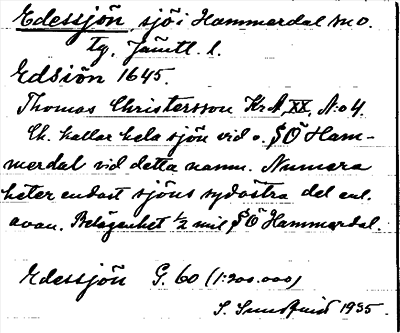 Edessjön, sjö i Hammerdal sn o.
tg. Jämtl. l.
Edsiön 1645.
Thomas Christersson Kr A, XX, N:o 4.
Ch. kallar hela sjön vid o. SÖ Ham-
merdal vid detta namn. Numera
heter endast sjöns sydöstra del enl.
ovan. Belägenhet 1/2 mil SÖ Hammerdal.
Edessjön G. 60 (1:200.000)
1935.